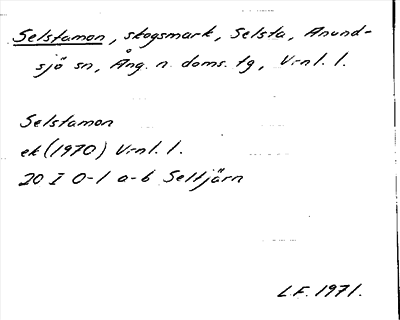 Selstamon, skogsmark, Selsta, Anund-
sjö sn, Ång. n. doms. tg, V.rnl. l.
Selstamon
ek (1970) V.rnl. l.
20 I 0-1 a-b Seltjärn
L.F. 1971.